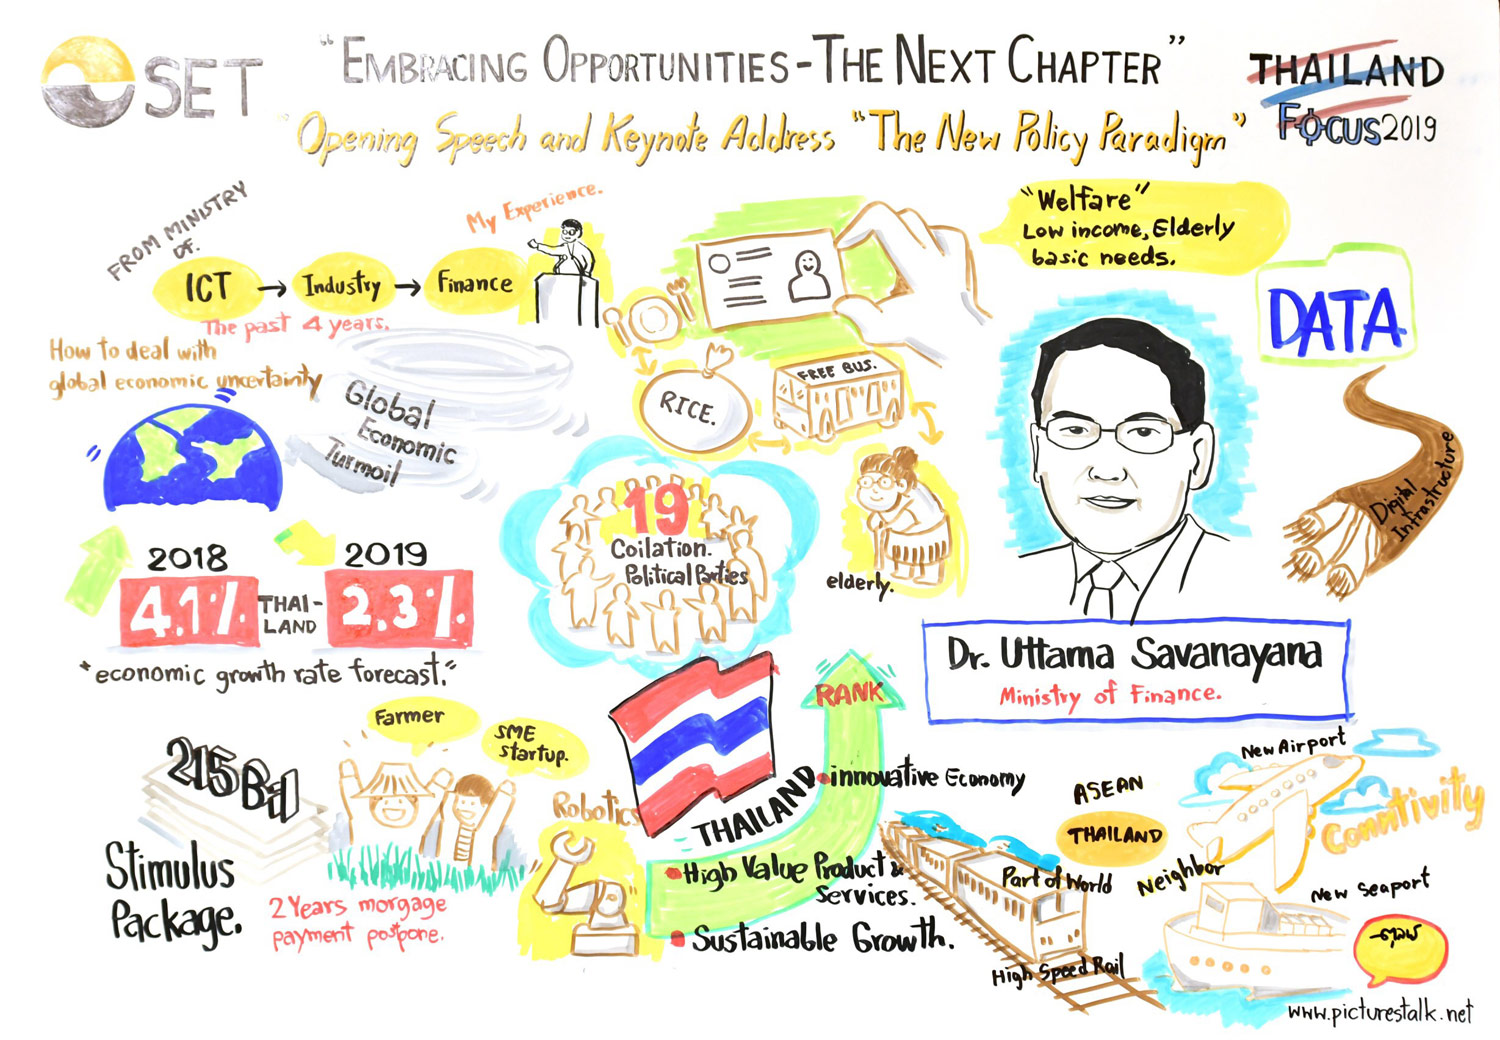 SET
"EMBRACING OPPORTUNITIES - THE NEXT CHAPTER"
THAILAND
FOCUS 2019
"Opening Speech and Keynote Address "The New Policy Paradigm"
FROM MINISTRY
OF.
ICT → Industry → Finance
The past 4 years.
My Experience.
"Welfare"
Low income, Elderly
basic needs.
DATA
How to deal with
global economic uncertainty
Global
Economic
Turmoil
RICE.
FREE BUS.
elderly.
Digital
Infrastructure
19
Coilation.
Political Parties
2018
4.1%
THAI-
LAND
2019
2.3%
"economic growth rate forecast."
Dr. Uttama Savanayana
Ministry of Finance.
215 Bil
Stimulus
Package.
Farmer
SME
startup.
2 Years morgage
payment postpone.
Robotics
RANK
THAILAND
innovative Economy
High Value Product &
Services.
Sustainable Growth.
ASEAN
THAILAND
Part of World
Neighbor
High Speed Rail
New Airport
Conntivity
New Seaport
www.picturestalk.net